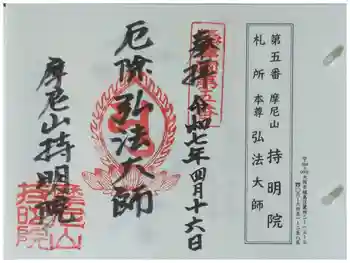 第五番 摩尼山 持明院
札所 本尊 弘法大師
奉拝 令和七年四月十六日
厄除弘法大師
摩尼山持明院
摩尼山
持明院